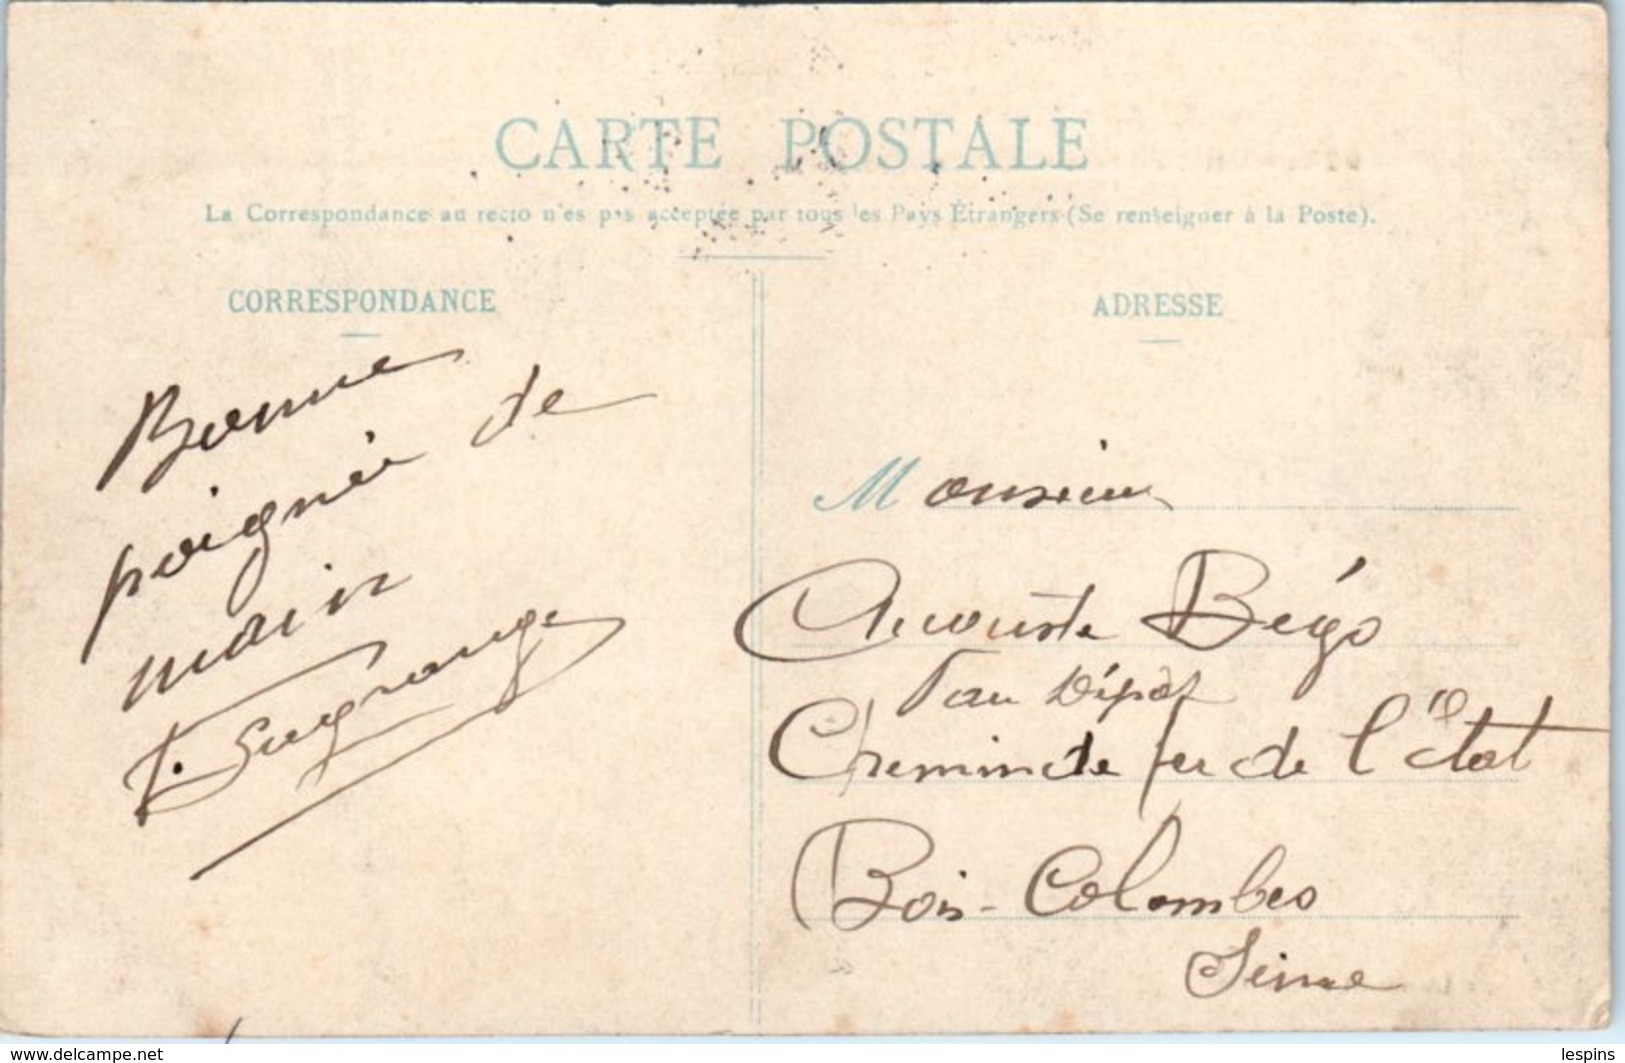 CARTE POSTALE
La Correspondance au recto n'es pas acceptée par tous les Pays Étrangers (Se renseigner à la Poste).
CORRESPONDANCE
Bonne
poignée de
main
ADRESSE
Monsieur
Auguste Bégo
au Dépôt
Chemin de fer de l'État
Bois-Colombes
Seine
www.delcampe.net
lespins